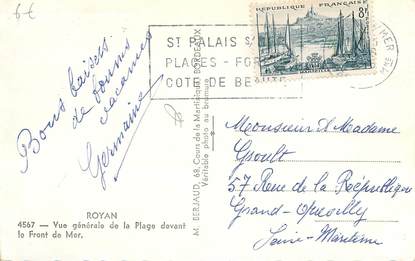 6€
Bons baisers
de bonnes
vacances
Germaine
ST PALAIS S/
PLAGES - FOR
COTE DE BE
REPUBLIQUE FRANÇAISE
8F
MARSEILLE
MER
ROYAN
4567 — Vue générale de la Plage devant
le Front de Mer.
M. BERJAUD, 68, Cours de la Martinique, BORDEAUX
Véritable photo au bromure
Monsieur et Madame
Groult
57 Rue de la République
Grand-Quevilly
Seine-Maritime